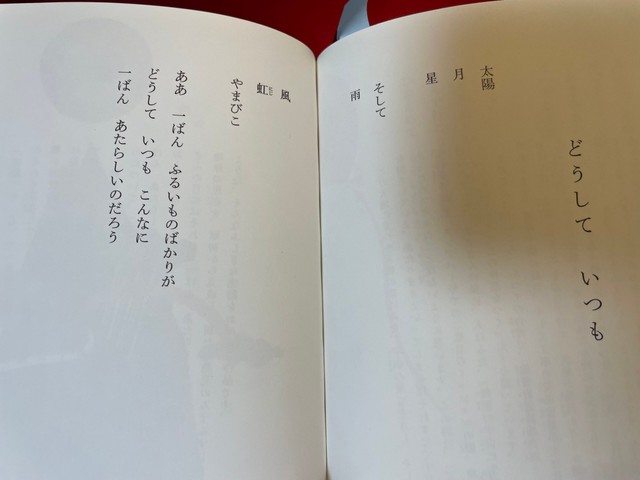 どうして　いつも
太陽
月
星
そして
雨
風
虹
やまびこ
ああ　一ばん　ふるいものばかりが
どうして　いつも　こんなに
一ばん　あたらしいのだろう